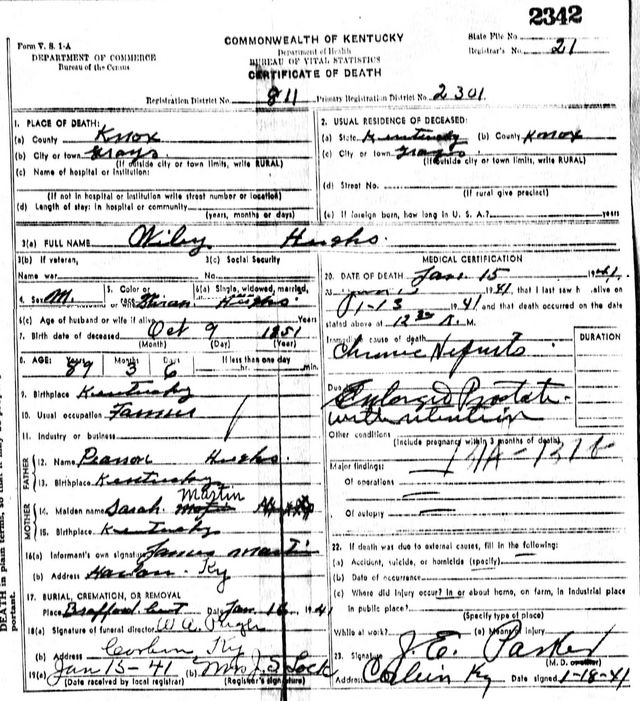 2342
Form V. S. 1-A
DEPARTMENT OF COMMERCE
Bureau of the Census
COMMONWEALTH OF KENTUCKY
Department of Health
BUREAU OF VITAL STATISTICS
CERTIFICATE OF DEATH
State File No.
Registrar's No. 21
Registration District No. 811 Primary Registration District No. 2301
1. PLACE OF DEATH:
(a) County Knox
(b) City or town Grays
(If outside city or town limits, write RURAL)
(c) Name of hospital or institution:
(If not in hospital or institution write street number or location)
(d) Length of stay: In hospital or community
(years, months or days)
2. USUAL RESIDENCE OF DECEASED:
(a) State Kentucky (b) County Knox
(c) City or town Grays
(If outside city or town limits, write RURAL)
(d) Street No.
(If rural give precinct)
(e) If foreign born, how long in U. S. A.? years
3(a) FULL NAME Wiley Hughs.
3(b) If veteran,
Name war
3(c) Social Security
No.
4. Sex M. 5. Color or race 6(a) Single, widowed, married,
Hughs
6(c) Age of husband or wife if alive Years
7. Birth date of deceased Oct 9 1851
(Month) (Day) (Year)
8. AGE: Years 89 Months 3 Days 6 If less than one day
hr. min.
9. Birthplace Kentucky
10. Usual occupation Farmer
11. Industry or business
FATHER
12. Name Hughs.
13. Birthplace Kentucky
MOTHER
14. Maiden name Sarah Martin
15. Birthplace Kentucky
16(a) Informant's own signature James Martin
(b) Address Harlan Ky
17. BURIAL, CREMATION, OR REMOVAL
Place Date Jan. 16, 1941
18(a) Signature of funeral director
(b) Address Corbin Ky
19(a) Jan 15-41 (b) Mrs J. S. Lock
(Date received by local registrar) (Registrar's signature)
MEDICAL CERTIFICATION
20. DATE OF DEATH Jan. 15 1941.
1941, that I last saw h alive on
1-13 1941 and that death occurred on the date
stated above at 12 30 M.
Immediate cause of death
DURATION
Chronic
Due to
Enlarged Prostate
with retention
Other conditions
(Include pregnancy within 3 months of death)
Major findings:
Of operations
Of autopsy
22. If death was due to external causes, fill in the following:
(a) Accident, suicide, or homicide (specify)
(b) Date of occurrence
(c) Where did injury occur? In or about home, on farm, in industrial place
in public place?
(Specify type of place)
While at work? (e) Means of injury
23. Signature J. E. Parker
(M.D. or other)
Address Corbin Ky Date signed 1-18-41